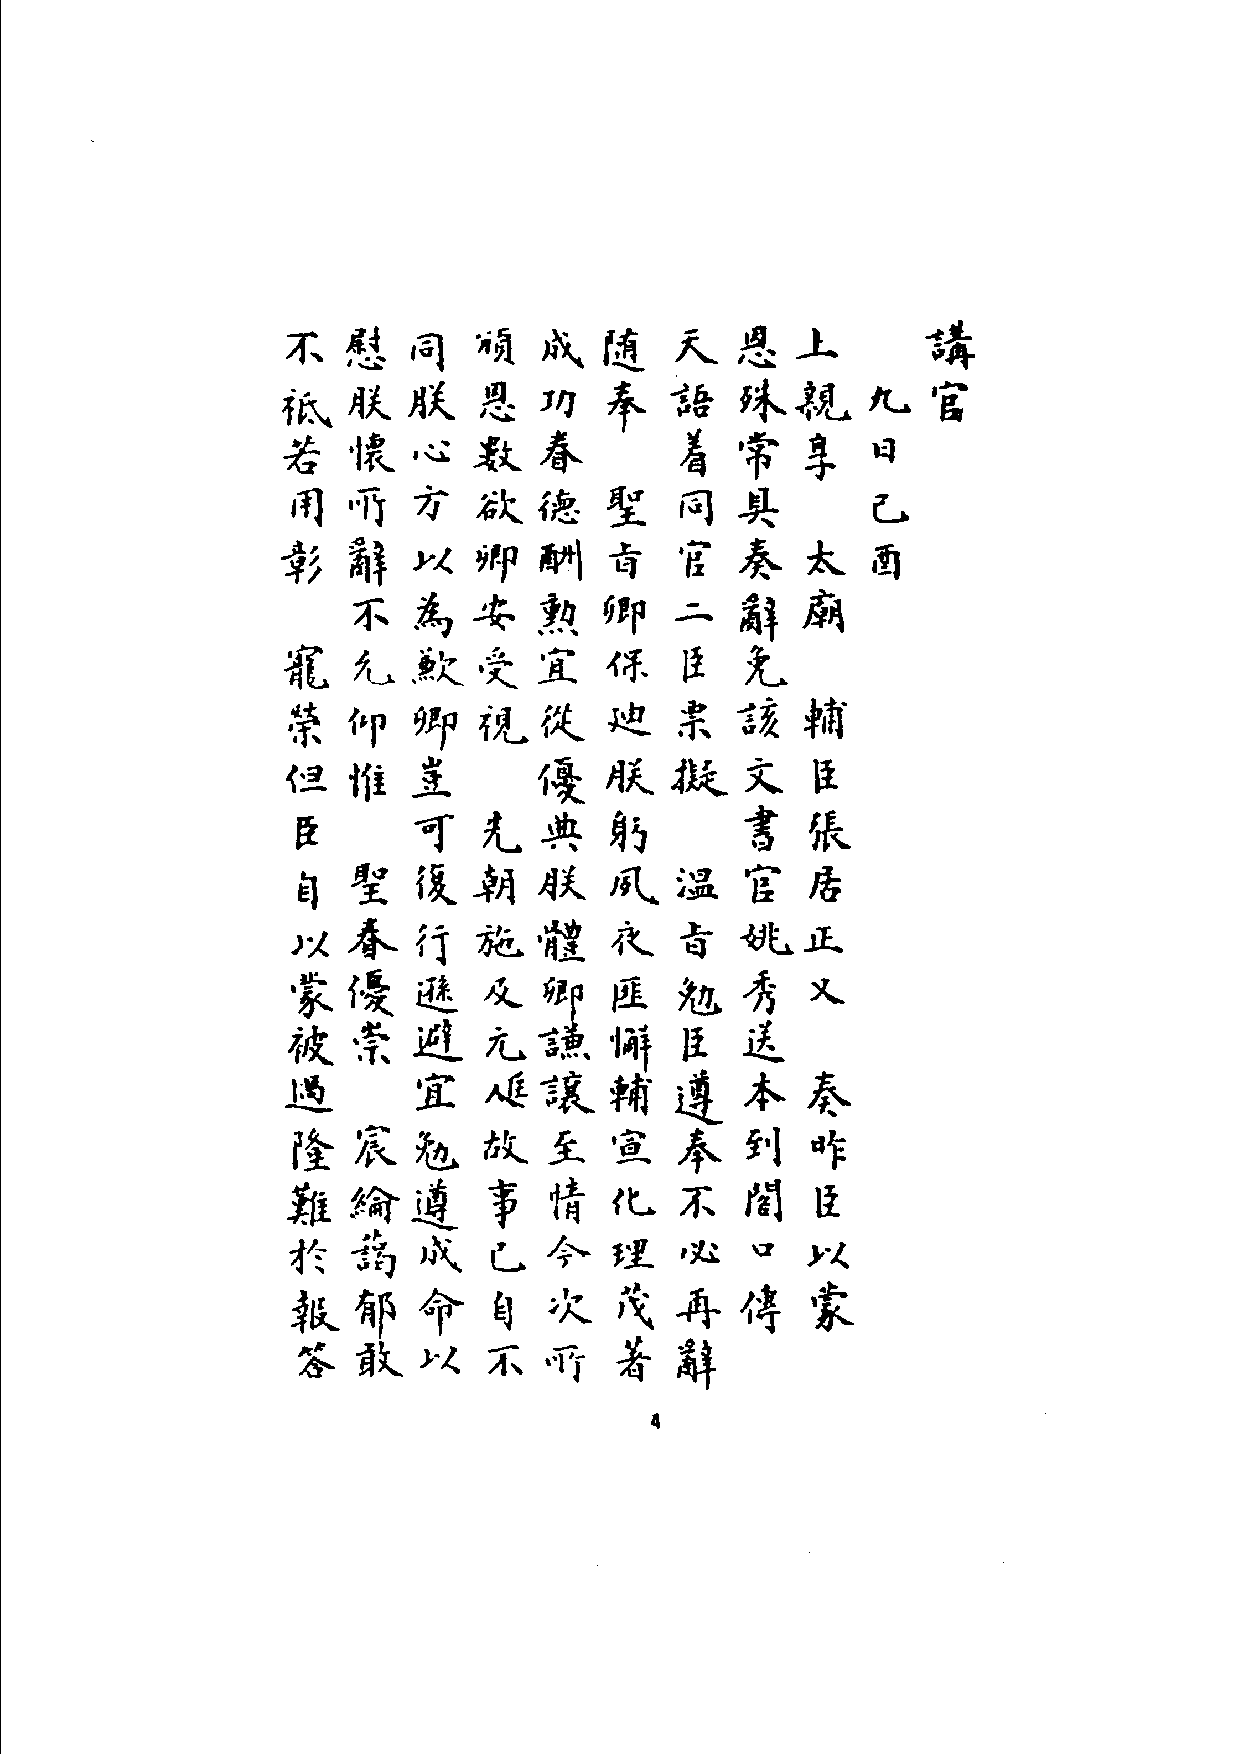 講官
九日己酉
上親享　太廟　輔臣張居正又　奏昨臣以蒙
恩殊常具奏辭免該文書官姚秀送本到閣口傳
天語着同官二臣票擬　溫旨勉臣遵奉不必再辭
随奉　聖旨卿保廸朕躬夙夜匪懈輔宣化理茂著
成功眷德酬勲宜從優典朕體卿謙讓至情今次所
頒恩数欲卿安受視　先朝施及元
故事已自不
同朕心方以為歉卿豈可復行遜避宜勉遵成命以
慰朕懷所辭不允仰惟　聖眷優崇　宸綸藹郁敢
不祗若用彰　寵榮但臣自以蒙被過隆難於報答
4